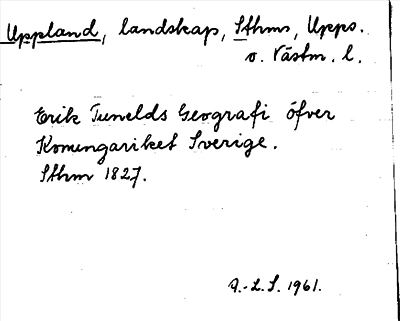 Uppland, landskap, Sthms, Upps.
o. Västm. l.
Erik Tunelds Geografi öfver
Konungariket Sverige.
Sthm 1827.
A.-L.S. 1961.